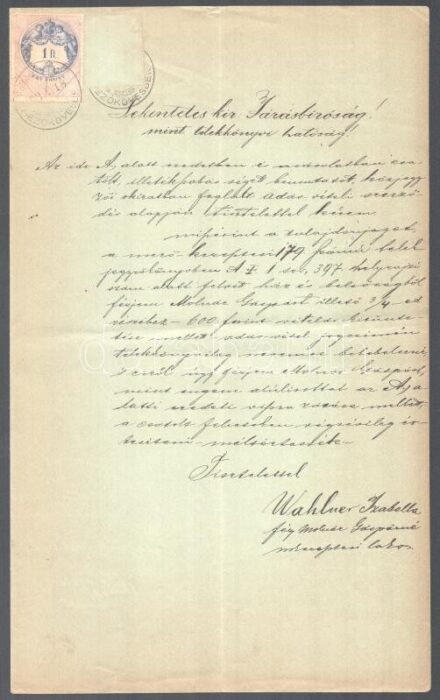 1 ft.
MEZŐKÖVESD
Tekintetes kir. Járásbiróság!
mint telekkönyvi hatóság!
Az ide A, alatt eredetben és másolatban csa
tolt, illetékszabás végett bemutatott, közjegy
zői okiratban foglalt adás vételi szerző
dés alapján tisztelettel kérem
miszerint a tulajdonjogot
a mező keresztesi 179 számú telek
jegyzőkönyvben A I 1 sor, 397 helyrajzi
szám alatt felvett ház és belsőségből
férjem Molnár Gáspárt illető 3/4-ed
részéhez - 600 forint vételár kitünte
tése mellett adás vétel jogcimén
telekkönyvileg nevemre bekebelezni
s erről ugy férjem Molnár Gáspárt,
mint engem alulirottat az A, a
latti eredeti vissza zárása mellett,
a csatolt felzeten végzésileg ér
tesiteni méltóztassék.
Tisztelettel
Wahlner Izabella
férj Molnár Gáspárné
mkeresztesi lakos.